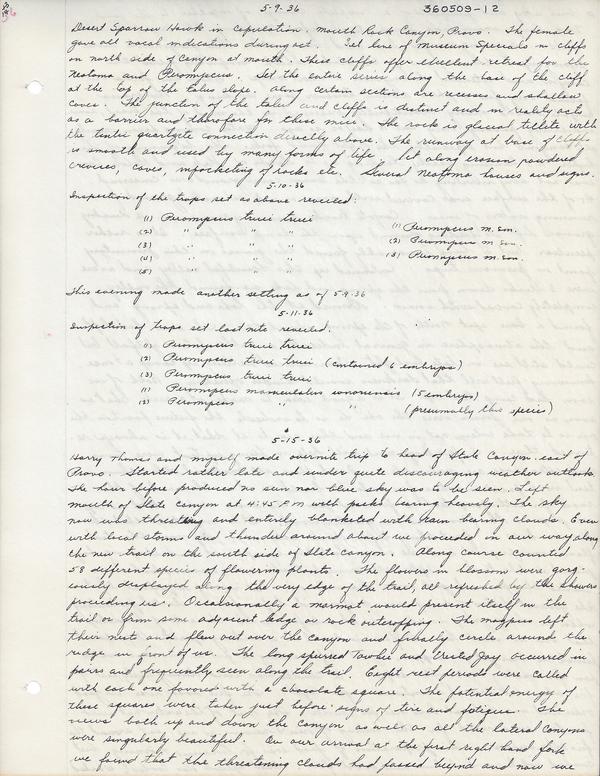 5-9-36 360509-12
Desert Sparrow Hawk in copulation. mouth Rock Canyon, Provo. The female
gave all vocal indications during act. Set line of Museum Specials in cliffs
on north side of Canyon at mouth. These cliffs offer excellent retreat for the
Neotoma and Peromyscus. Set the entire series along the base of the cliff
at the top of the talus slope. Along certain sections are recesses and shallow
caves. The junction of the talus and cliffs is distinct and in reality acts
as a barrier and therefore for these mice. The rock is glacial tillite with
the tintic quartzite connection directly above. The runway at base of cliffs
is smooth and used by many forms of life. Set along erosion powdered
crevices, caves, of rocks etc. Several Neotoma houses and signs.
5-10-36
Inspection of the traps set as above revealed:
(1) Peromyscus truei truei (1) Peromyscus m. son.
(2) " " " (2) Peromyscus m son.
(3) " " " (3) Peromyscus m. son.
(4) " " "
(5) " " "
This evening made another setting as of 5-9-36
5-11-36
Inspection of traps set last nite revealed:
(1) Peromyscus truei truei
(2) Peromyscus truei truei (contained 6 embryos)
(3) Peromyscus truei truei
(1) Peromyscus maniculatus sonoriensis (5 embryos)
(2) Peromyscus " " (presumally this species)
5-15-36
Harry Thomas and myself made overnite trip to head of Slate Canyon. east of
Provo. Started rather late and under quite discouraging weather outlook.
The hour before produced no sun nor blue sky was to be seen. Left
mouth of Slate Canyon at 4:45 P M with packs bearing heavely. The sky
now was threatning and entirely blanketed with rain bearing clouds. Even
with local storms and thunder around about we proceeded on our way along
the new trail on the south side of Slate Canyon. Along course counted
58 different species of flowering plants. The flowers in blossom were gorg-
iously displayed along the very edge of the trail, all refreshed by the showers
preceeding us. Occassionally a marmot would present itself in the
trail or from some adjacent ledge or rock outcropping. The magpies left
their nests and flew out over the Canyon and finally circle around the
ridge in front of us. The long spurred Towhee and Crested Jay occurred in
pairs and frequently seen along the trail. Eight rest periods were called
with each one favored with a chocolate square. The potential energy of
these squares were taken just before signs of tire and fatigue. The
views both up and down the canyon as well as all the lateral canyons
were singularly beautiful. On our arrival at the first right hand fork
we found that the threatening clouds had passed beyond and now we